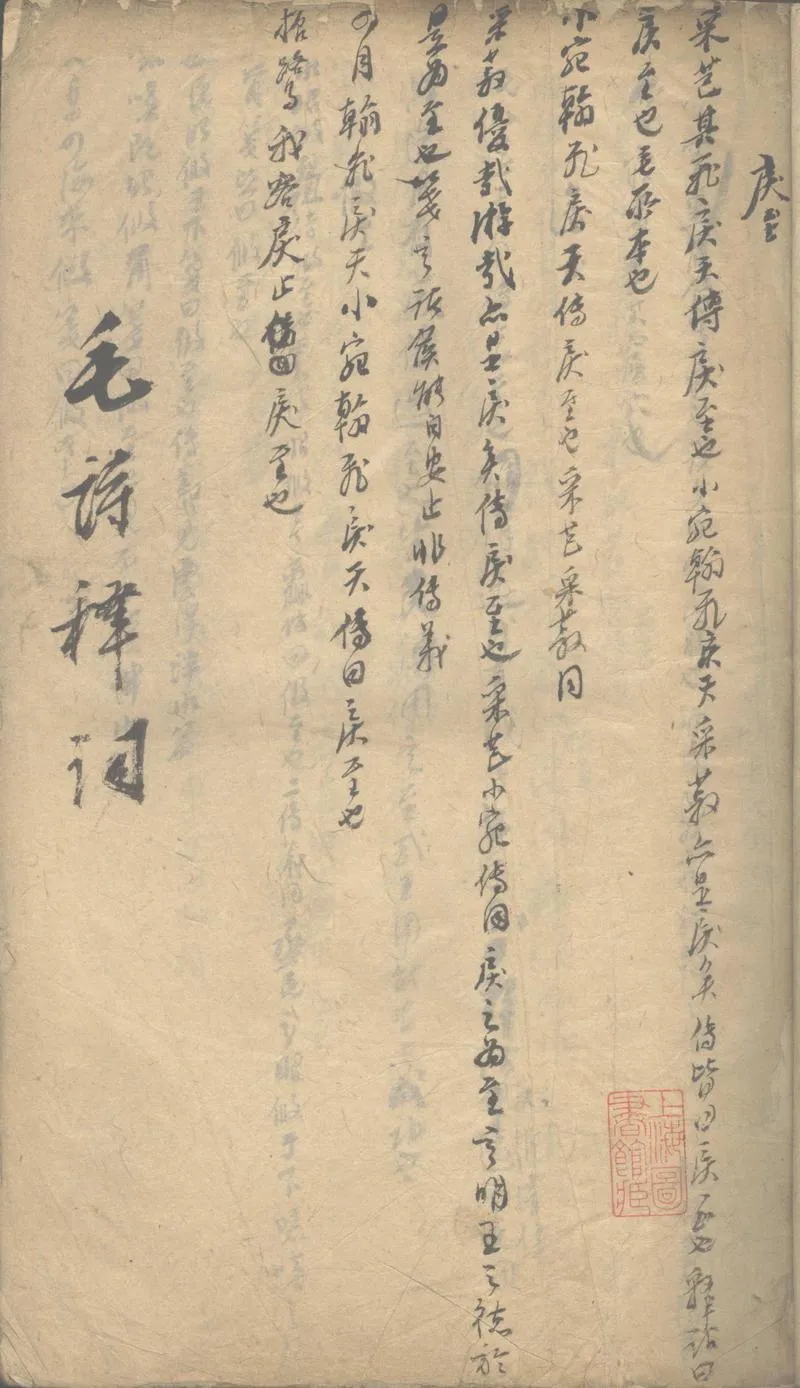 戾至
采芑其飛戾天傳戾至也小宛翰飛戾天采菽亦是戾矣傳皆曰戾至也釋詁曰
戾至也毛所本也
小宛翰飛戾天傳戾至也采芑采菽同
采菽優哉游哉亦是戾矣傳戾至也采芑小宛傳同戾之為至言明王之德於
是為至也箋言諸侯能自安止非傳義
四月翰飛戾天小宛翰飛戾天傳曰戾至也
振鷺我客戾止傳曰戾至也
毛詩釋詞
上海圖書館臧